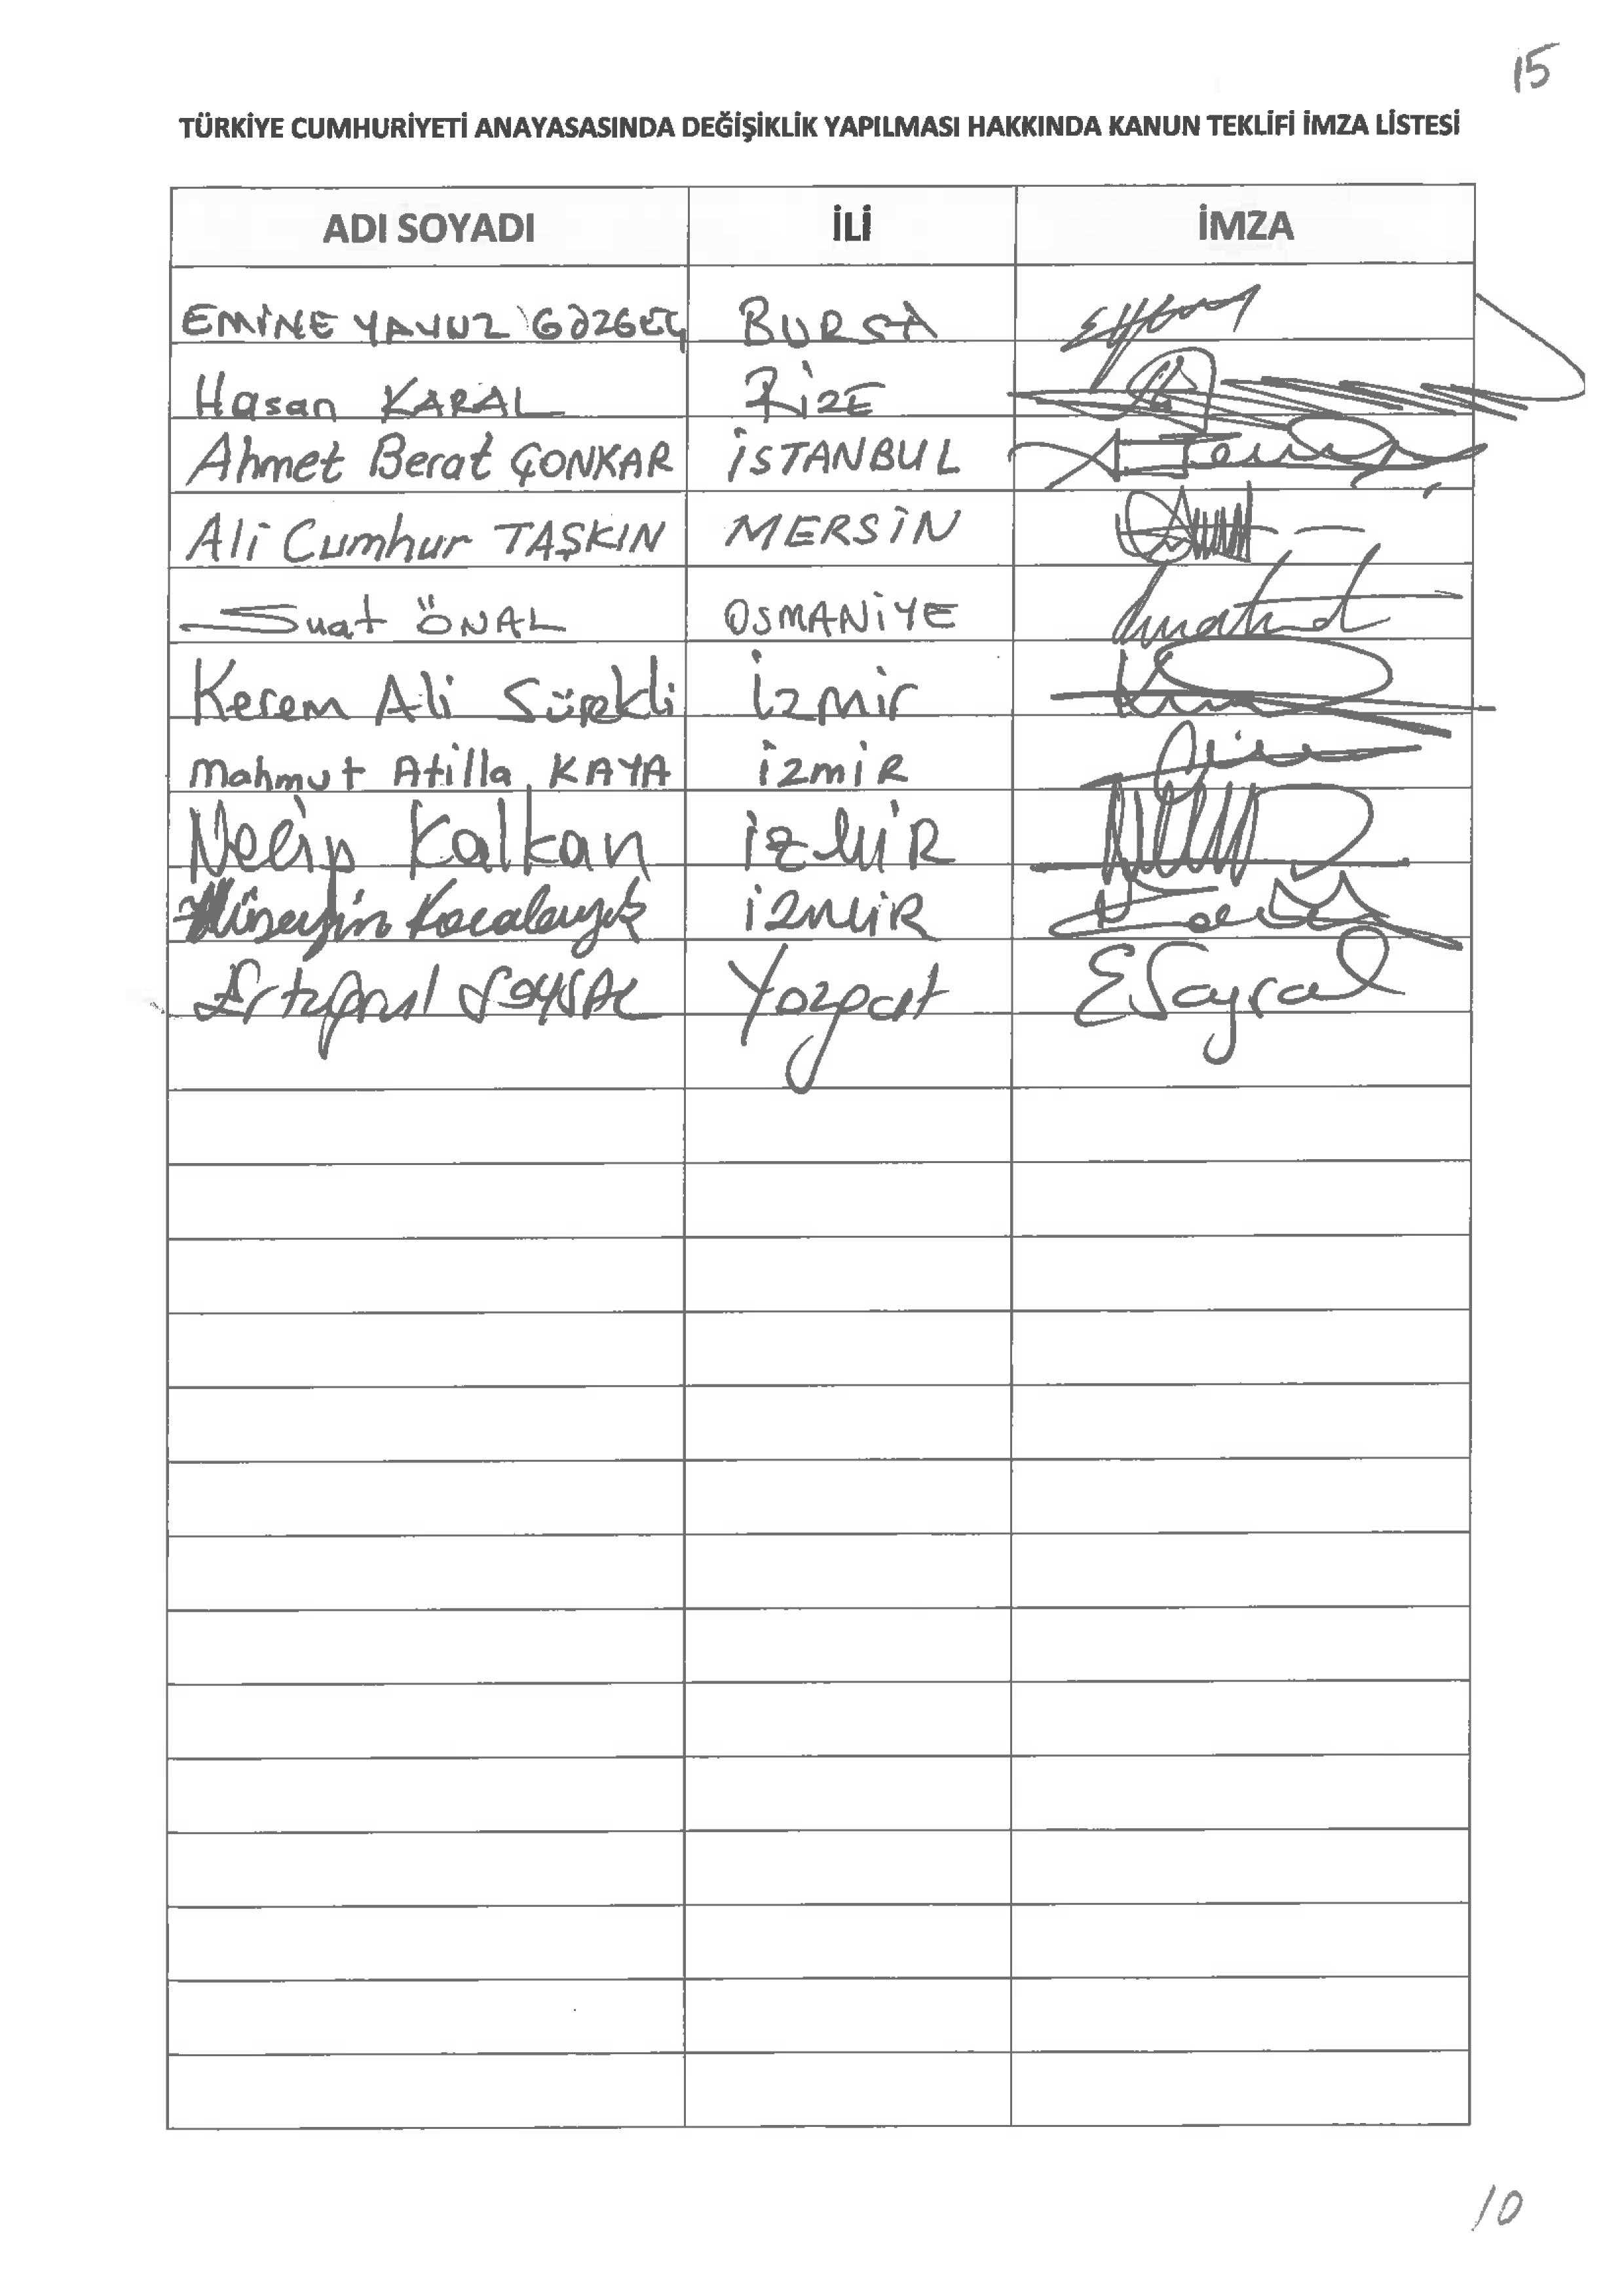 15
TÜRKİYE CUMHURİYETİ ANAYASASINDA DEĞİŞİKLİK YAPILMASI HAKKINDA KANUN TEKLİFİ İMZA LİSTESİ
ADI SOYADI İLİ İMZA
EMİNE YAVUZ GÖZGEÇ BURSA
Hasan KARAL RİZE
Ahmet Berat ÇONKAR İSTANBUL
Ali Cumhur TAŞKIN MERSİN
Suat ÖNAL OSMANİYE
Kerem Ali Sürekli İzmir
Mahmut Atilla KAYA İzmİR
Necip Kalkan İZMİR
Hüseyin Kocabıyık İZMİR
Ertuğrul SOYSAL Yozgat ESoysal
10